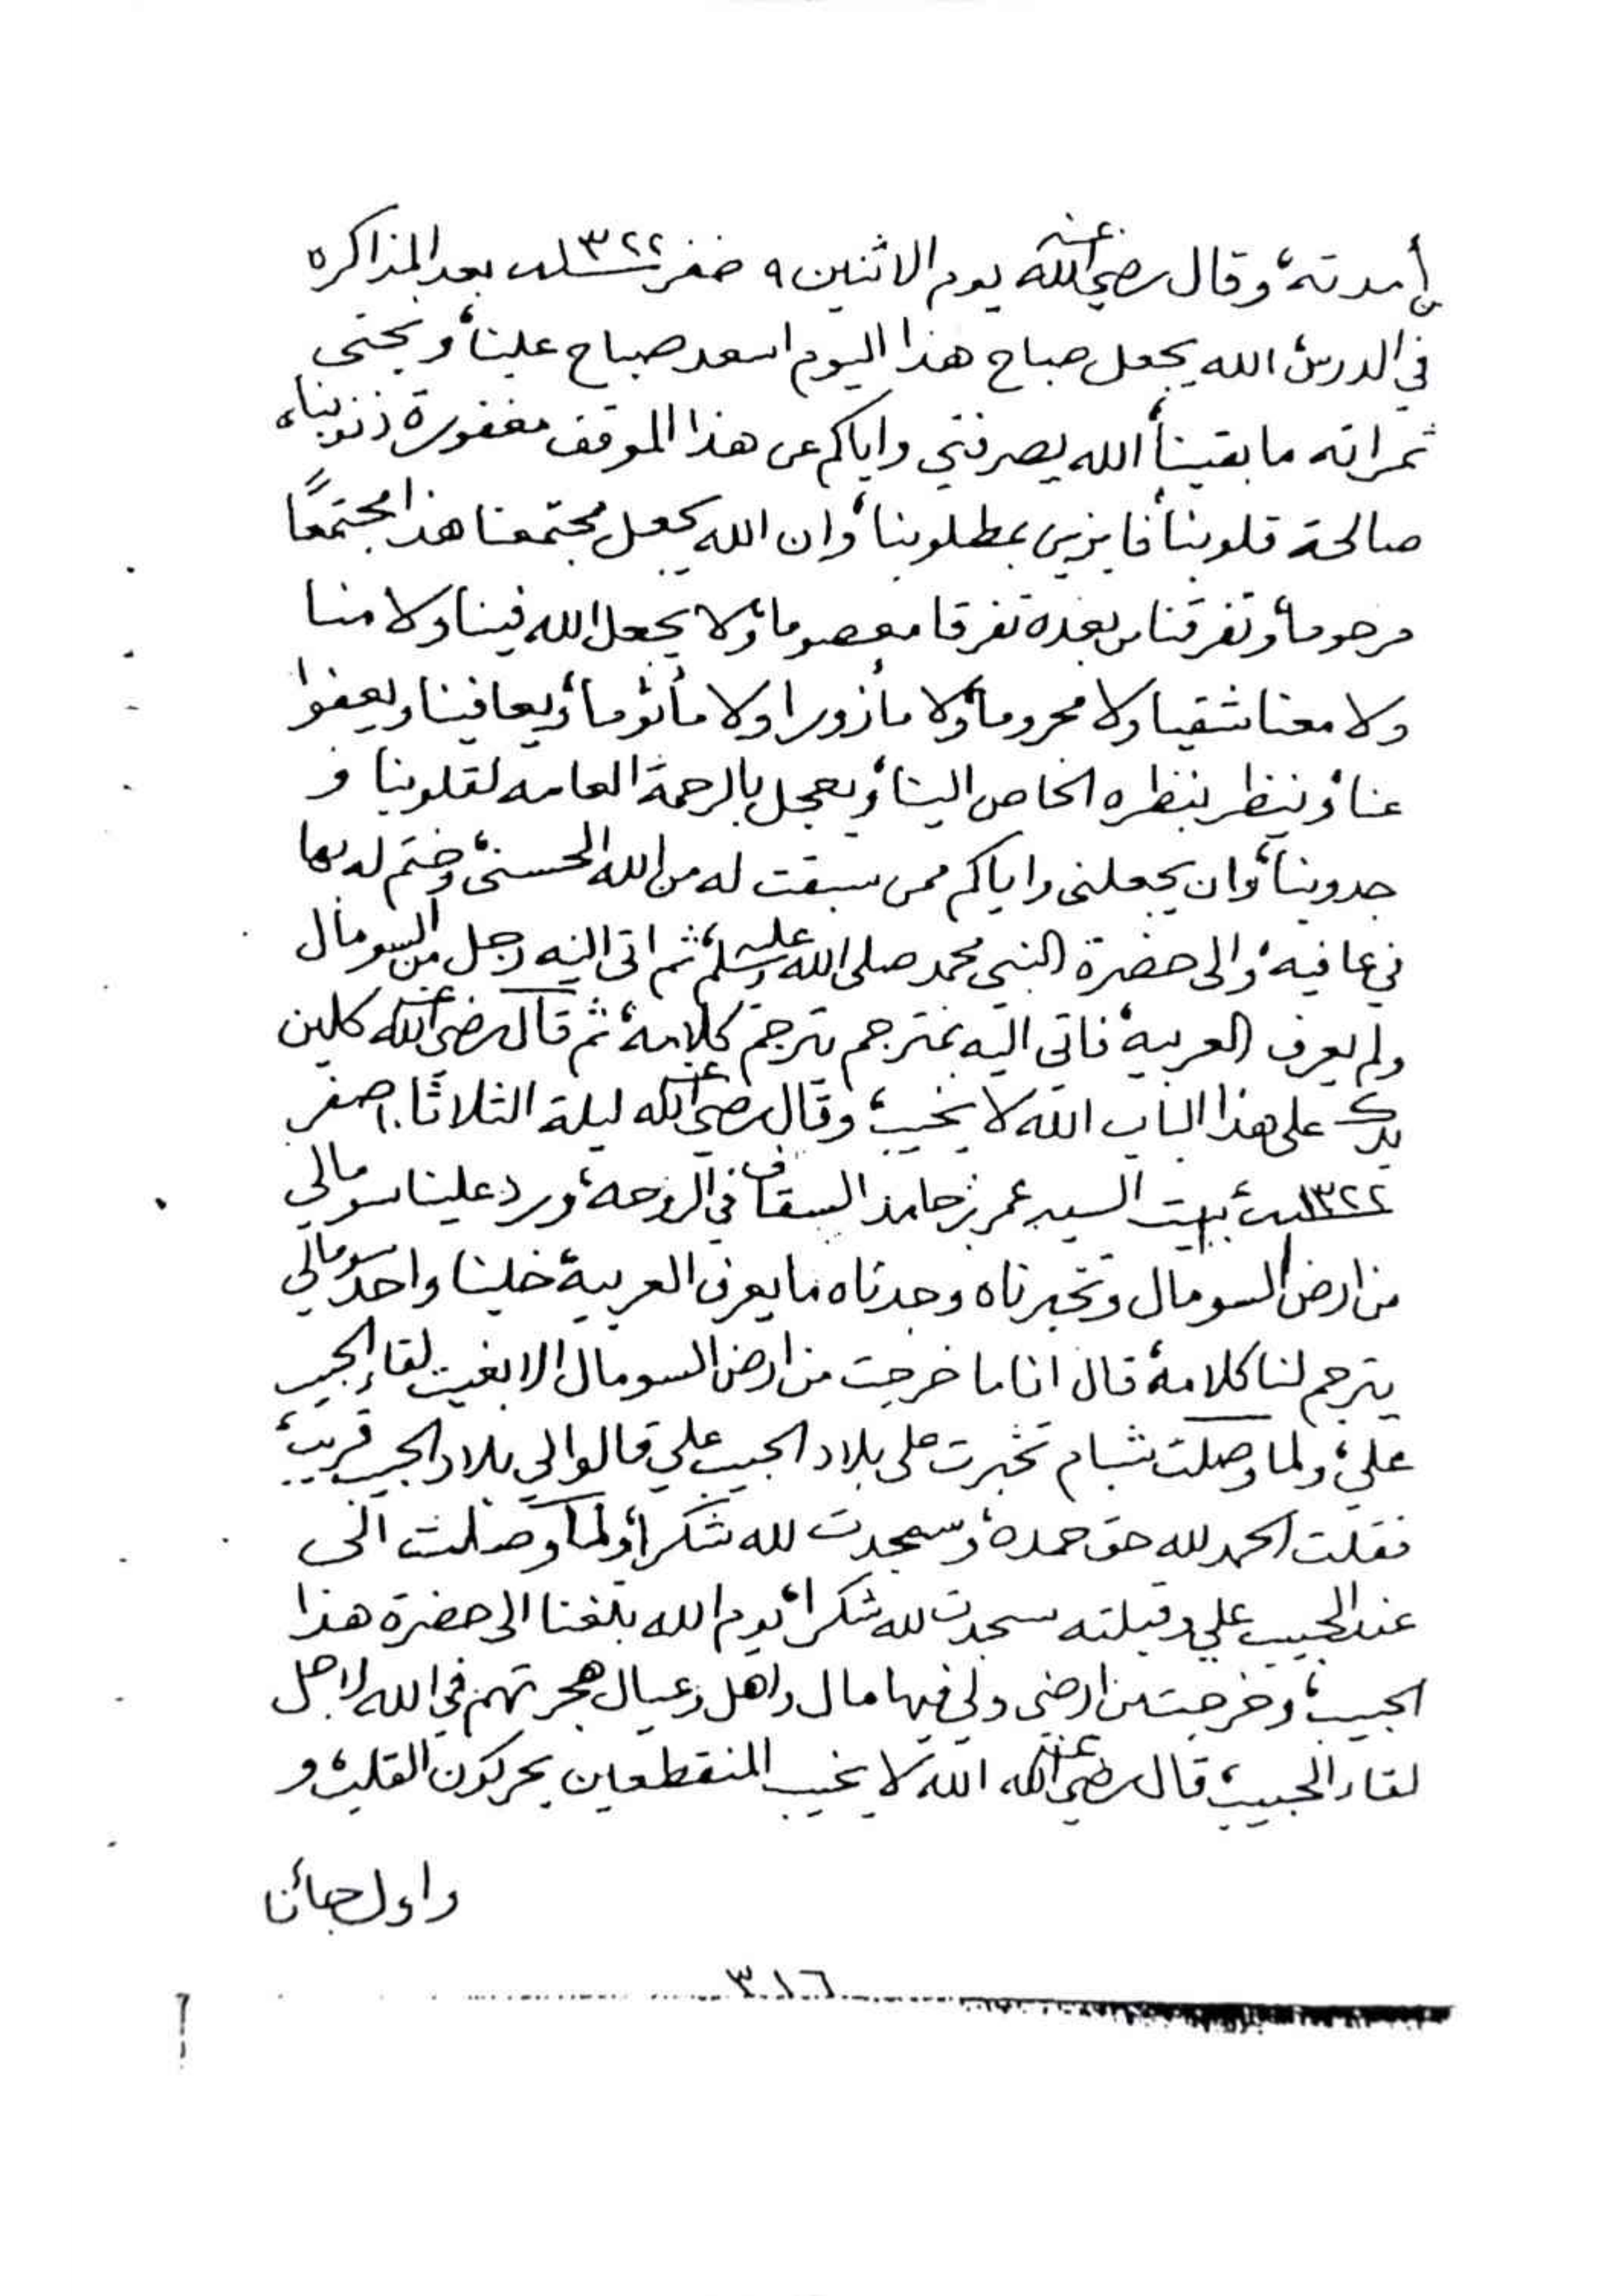 أمدته، وقال رضي الله عنه يوم الاثنين ٩ صفر سنة ٣٢٢ بعد المذاكره
في الدرس، الله يجعل صباح هذا اليوم اسعد صباح علينا، و نجني
ثمراته ما بقينا، الله يصرفني واياكم عن هذا الموقف مغفورة ذنوبنا،
صالحة قلوبنا، فايزين بمطلوبنا، وان الله يجعل مجتمعنا هذا مجتمعًا
مرحوما، وتفرقنا من بعده تفرقا معصوما، ولا يجعل الله فينا ولا منا
ولا معنا شقيا ولا محروما، ولا مأزورا ولا مأثوما، ويعافينا ويعفوا
عنا، وينظر بنظره الخاص الينا، ويعجل بالرحمة العامه لقلوبنا و
جدوبنا، وان يجعلنى واياكم ممن سبقت له من الله الحسنى، وختم له بها
في عافيه، والى حضرة النبي محمد صلى الله عليه وسلم، ثم اتى اليه رجل من السومال
ولم يعرف العربية، فاتى اليه بمترجم يترجم كلامه، ثم قال رضي الله عنه كلين
يدك على هذا الباب الله لا يخيب، وقال رضي الله عنه ليلة الثلاثا ١٠ صفر
١٣٢٢ سنة، ببيت السيد عمر بن حامد السقاف في الروحه، ورد علينا سومالي
من ارض السومال وتخبرناه وجدناه ما يعرف العربية، خلينا واحد سومالي
يترجم لنا كلامه، قال انا ما خرجت من ارض السومال الا بغيت لقاء الحبيب
علي، ولما وصلت شبام تخبرت على بلاد الحبيب علي قالوا لي بلاد الحبيب قريب،
فقلت الحمد لله حق حمده، وسجدت لله شكرا، ولما وصلت الى
عند الحبيب علي وقبلته سجدت لله شكرا، يوم الله بلغنا الى حضرة هذا
الحبيب، وخرجت من ارضي ولي فيها مال واهل وعيال هجرتهم في الله لاجل
لقاء الحبيب، قال رضي الله عنه الله لا يخيب المنقطعين يحركون القلب، و
واول جاءنا
٣١٦